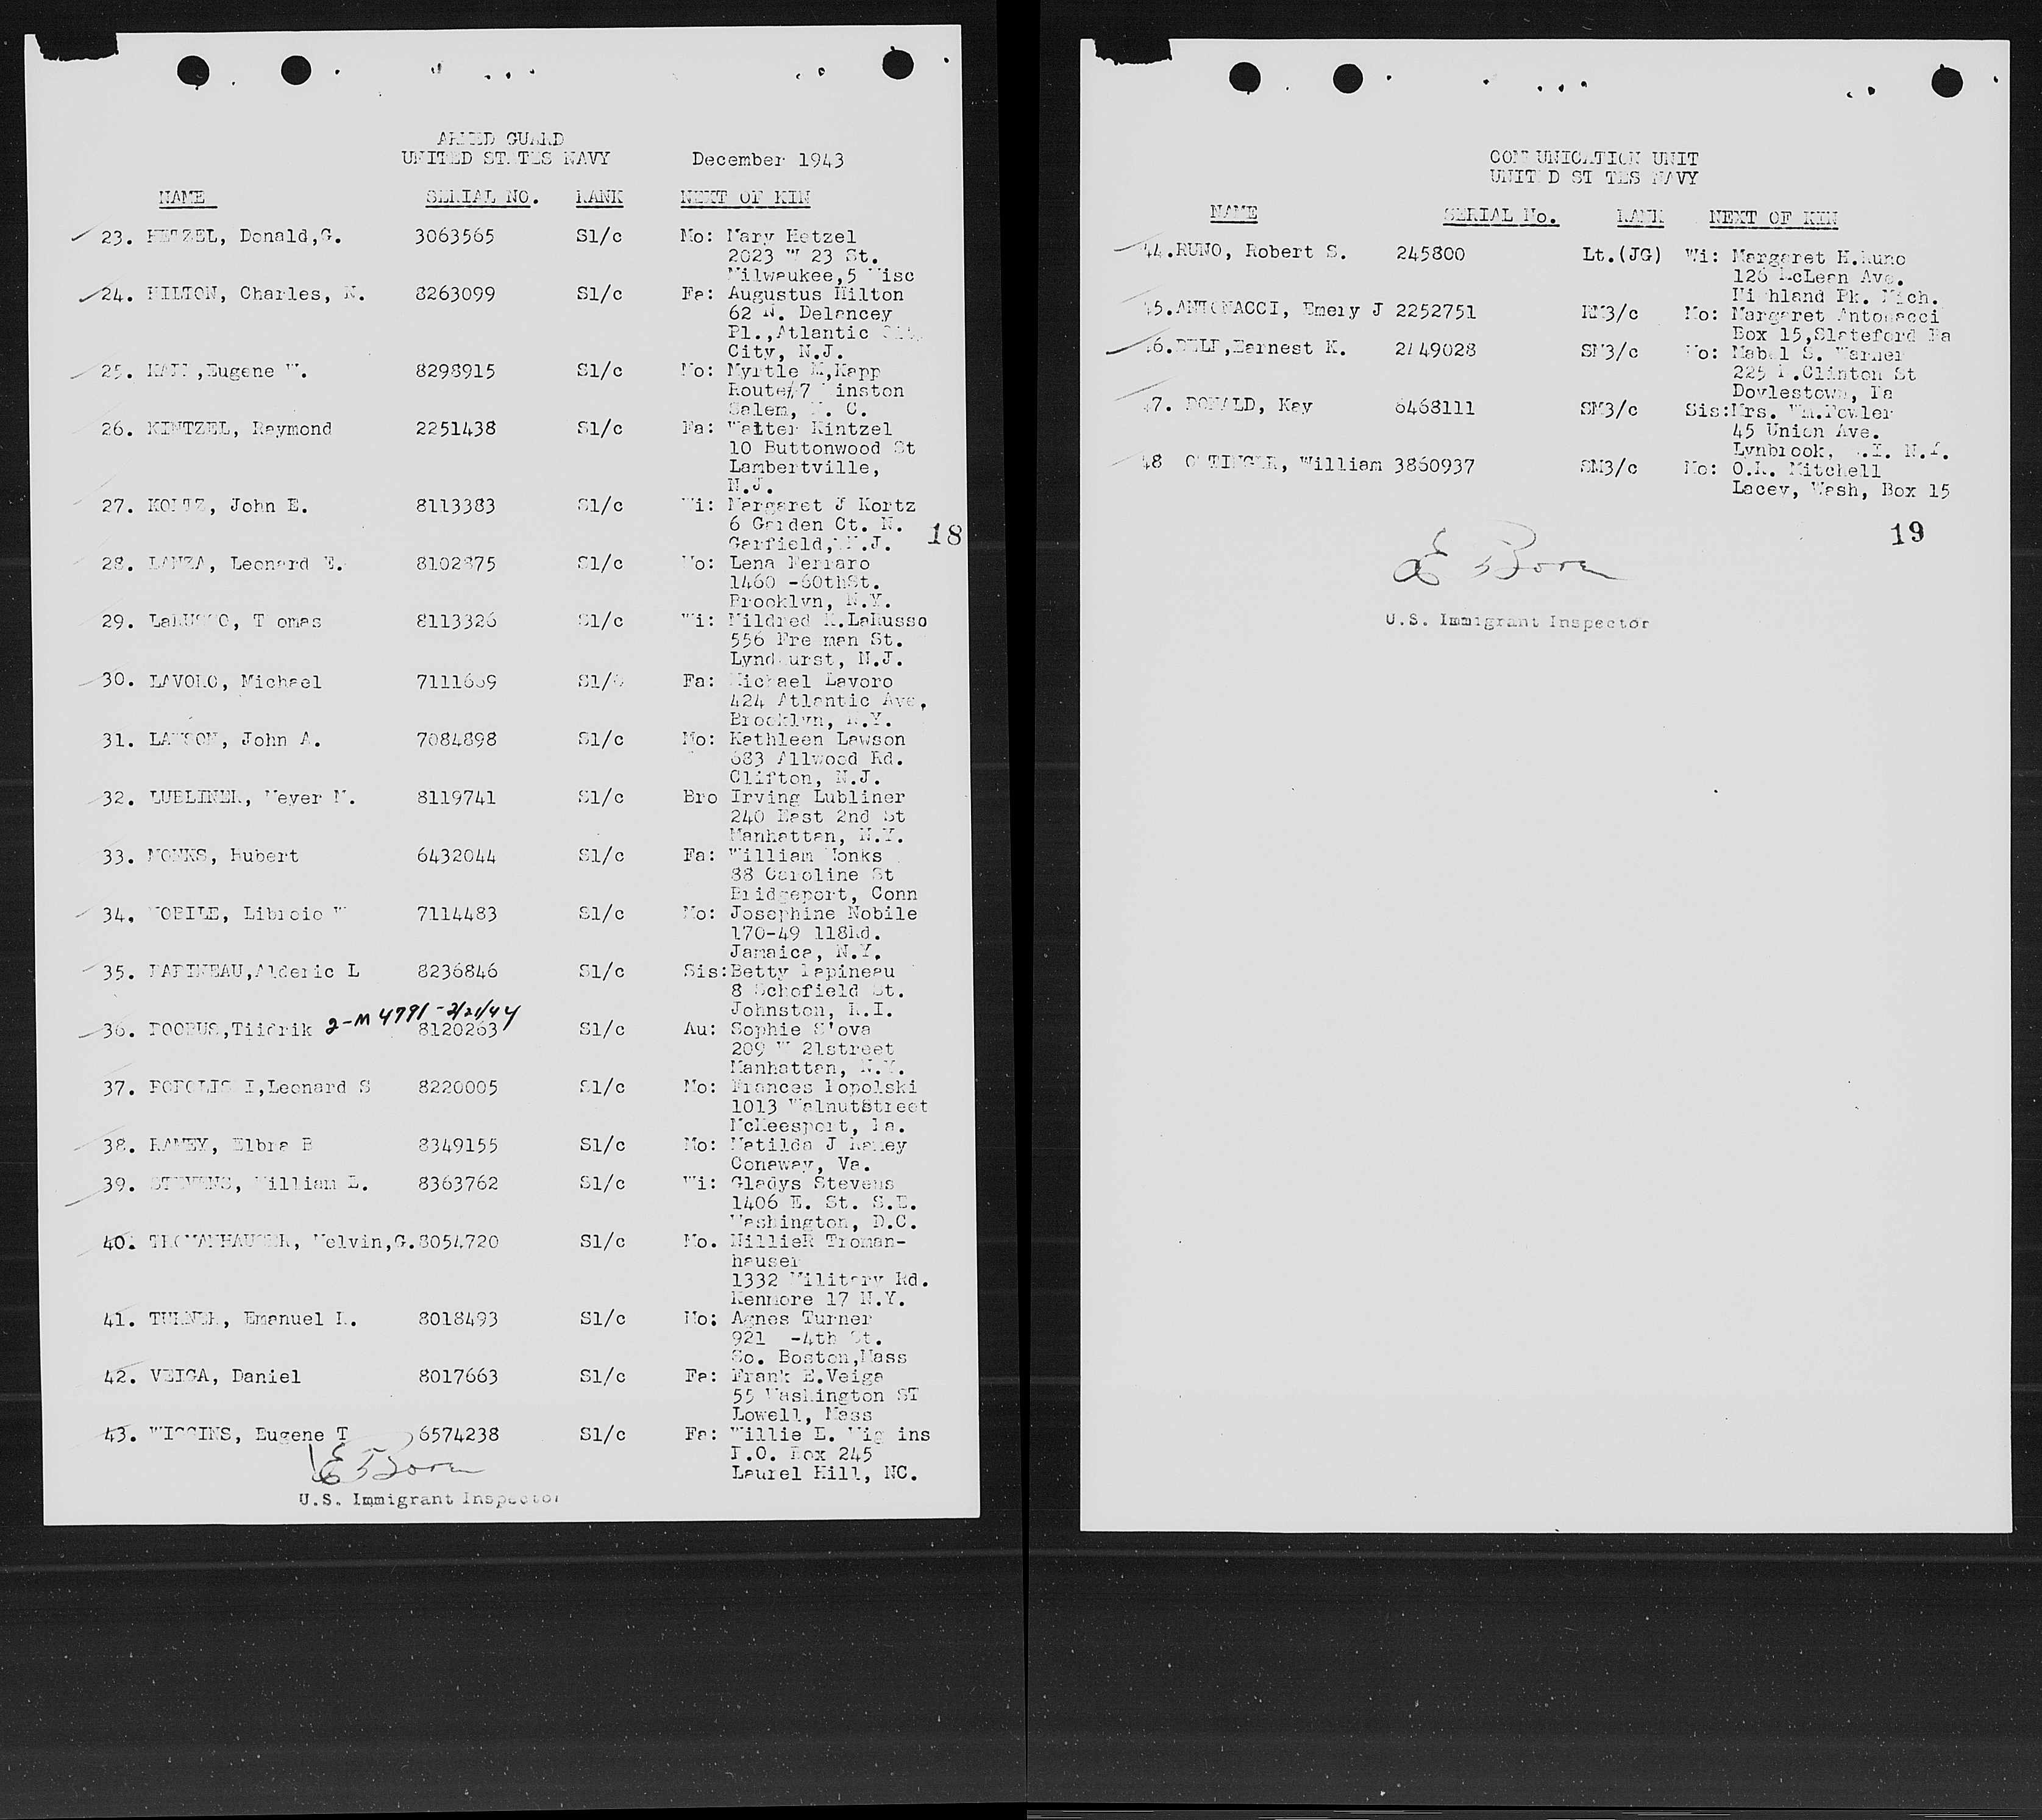 ARMED GUARD
UNITED STATES NAVY December 1943
NAME SERIAL NO. RANK NEXT OF KIN
23. HETZEL, Donald,G. 3063565 S1/c Mo: Mary Hetzel
2023 W 23 St.
Milwaukee,5 Wisc
24. HILTON, Charles, N. 8263099 S1/c Fa: Augustus Hilton
62 N. Delancey
Pl.,Atlantic
City, N.J.
25. ,Eugene W. 8298915 S1/c Mo: Myrtle M,Kapp
Route#7 Winston
Salem, N. C.
26. KINTZEL, Raymond 2251438 S1/c Fa: Walter Kintzel
10 Buttonwood St
Lambertville,
N.J.
27. KORTZ, John E. 8113383 S1/c Wi: Margaret J Kortz
6 Garden Ct. N.
Garfield, N.J. 18
28. LANZA, Leonard E. 8102875 S1/c Mo: Lena Ferraro
1460 -60thSt.
Brooklyn, N.Y.
29. LaRUSSO, Thomas 8113326 S1/c Wi: Mildred LaRusso
556 Freeman St.
Lyndhurst, N.J.
30. LAVORO, Michael S1/c Fa: Michael Lavoro
424 Atlantic Ave,
Brooklyn, N.Y.
31. LAWSON, John A. 7084898 S1/c Mo: Kathleen Lawson
683 Allwood Rd.
Clifton, N.J.
32. LUBLINER, Meyer M. 8119741 S1/c Bro Irving Lubliner
240 East 2nd St
Manhattan, N.Y.
33. MONKS, Hubert 6432044 S1/c Fa: William Monks
88 Caroline St
Bridgeport, Conn
34. NOBILE, Libroio W 7114483 S1/c Mo: Josephine Nobile
170-49 118Rd.
Jamaica, N.Y.
35. PAPINEAU,Alderic L 8236846 S1/c Sis:Betty Papineau
8 Schofield St.
Johnston, R.I.
2-M4791-2/21/44
36. ROOBUS,Tiidrik 8120263 S1/c Au: Sophie
209 W 21street
Manhattan, N.Y.
37. POPOLSKI,Leonard S 8220005 S1/c Mo: Frances Popolski
1013 WalnutStreet
McKeesport, Pa.
38. RAMEY, Elbra B 8349155 S1/c Mo: Matilda J Ramey
Conaway, Va.
39. STEVENS, William L. 8363762 S1/c Wi: Gladys Stevens
1406 E. St. S.E.
Washington, D.C.
40. TROMANHAUSER, Melvin,G.8054720 S1/c Mo. NillieR Troman-
hauser
1332 Military Rd.
Kenmore 17 N.Y.
41. TURNER, Emanuel L. 8018493 S1/c Mo: Agnes Turner
921 -4th St.
So. Boston,Mass
42. VEIGA, Daniel 8017663 S1/c Fa: Frank E.Veiga
55 Washington ST
Lowell, Mass
43. WIGGINS, Eugene T 6574238 S1/c Fa: Willie L. Wiggins
P.O. Box 245
Laurel Hill, NC.
E Born
U.S. Immigrant Inspector
COMMUNICATION UNIT
UNITED STATES NAVY
NAME SERIAL No. RANK NEXT OF KIN
44.RUNO, Robert S. 245800 Lt.(JG) Wi: Margaret H.Runo
126 McLean Ave.
Highland Pk. Mich.
45.ANTONACCI, Emery J 2252751 RM3/c Mo: Margaret Antonacci
Box 15,Slateford Pa
46.DELP,Earnest K. 2449028 SM3/c Mo: Mabel S. Warner
225 N.Clinton St
Doylestown, Pa
47. DONALD, Kay 6468111 SM3/c Sis:Mrs. Wm.Fowler
45 Union Ave.
Lynbrook, L.I. N.Y.
48 OTTINGER, William 3860937 SM3/c Mo: O.K. Mitchell
Lacey, Wash, Box 15
19
E Born
U.S. Immigrant Inspector